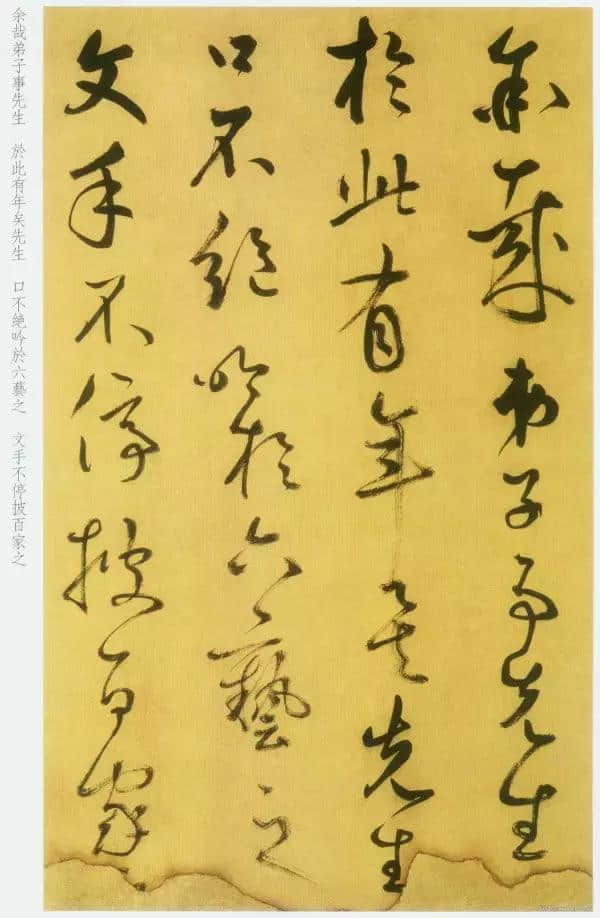 余哉弟子事先生
於此有年矣先生
口不絶吟於六藝之
文手不停披百家之
余哉弟子事先生 於此有年矣先生 口不絶吟於六藝之 文手不停披百家之